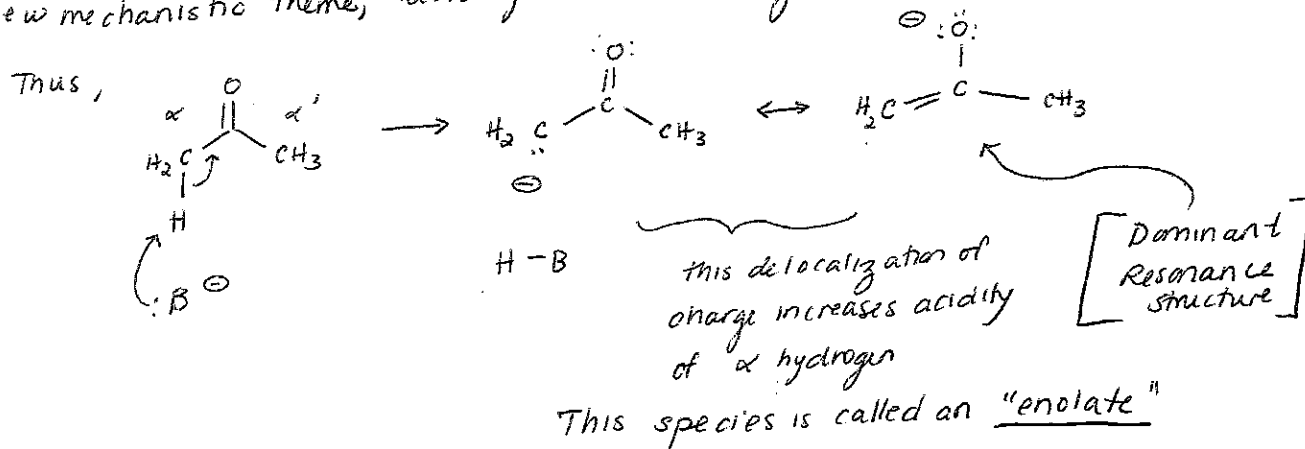 ew mechanistic theme,
Thus,
α O α'
H2C C CH3
H
:B ⊖
⟶
:O:
H2C C CH3
⊖
H-B
⟷
⊖ :Ö:
H2C=C-CH3
this delocalization of
charge increases acidity
of α hydrogen
[Dominant
Resonance
structure]
This species is called an "enolate"